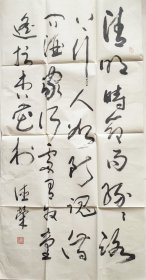 清明時節雨紛々路
上行人欲斷魂借
問酒家何處有牧童
遙指杏花村 德榮